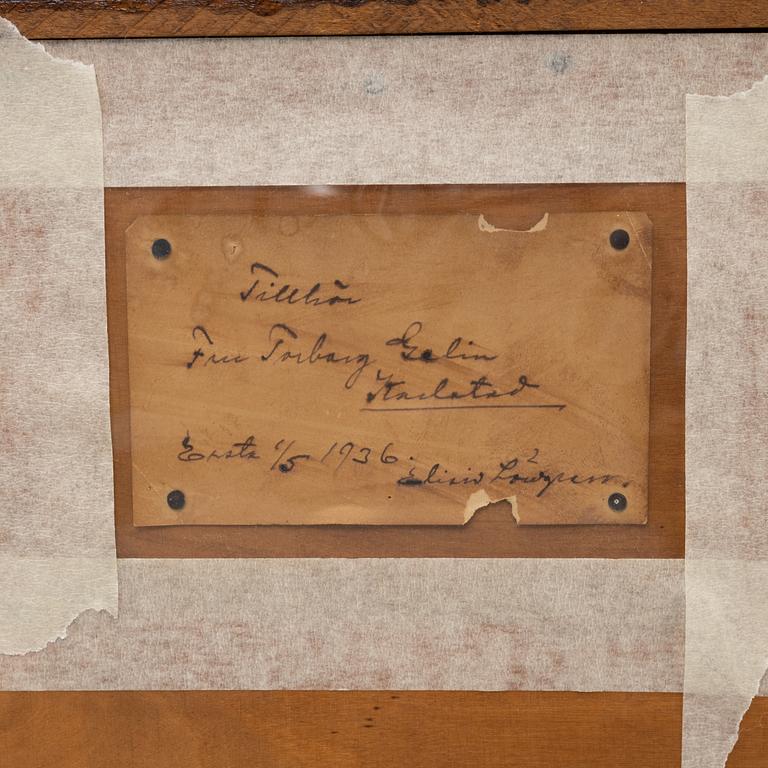 Tillhör
Fru Torborg Gelin
Karlstad
Ersta 1/5 1936.
Löwgren.